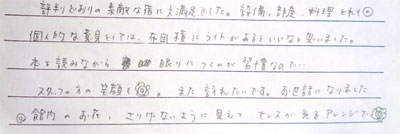 評判どおりの素敵な宿に大満足でした。設備、部屋、料理 どれも◎
個人的な意見としては、布団横にライトがあるといいなと思いました。
本を読みながら 眠りにつくのが習慣なので…
スタッフさんの笑顔も 。また訪れたいです。お世話になりました
◎館内のお花、さりげないように見えて センスが光るアレンジで